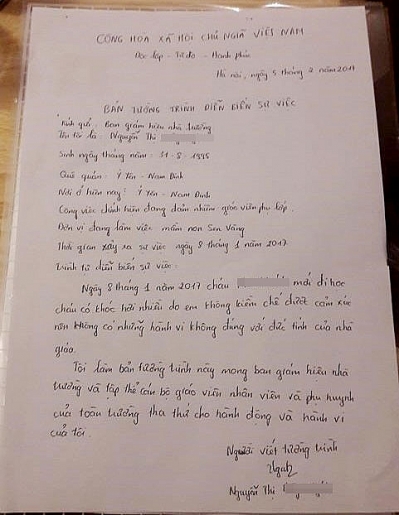 CỘNG HÒA XÃ HỘI CHỦ NGHĨA VIỆT NAM
Độc lập - Tự do - Hạnh phúc
Hà nội, ngày 5 tháng 2 năm 2017
BẢN TƯỜNG TRÌNH DIỄN BIẾN SỰ VIỆC
Kính gửi: Ban giám hiệu nhà trường
Tên tôi là: Nguyễn Thị
Sinh ngày tháng năm: 11-8-1995
Quê quán: Ý Yên - Nam Định
Nơi ở hiện nay: Ý Yên - Nam Định
Công việc chính hiện đang đảm nhiệm: giáo viên phụ lớp
Đơn vị đang làm việc: mầm non Sen Vàng
Thời gian xảy xa sự việc ngày 8 tháng 1 năm 2017
Trình tự diễn biến sự việc:
Ngày 8 tháng 1 năm 2017 cháu mới đi học
cháu có khóc hơi nhiều do em không kiềm chế được cảm xúc
nên không có những hành vi không đúng với đức tính của nhà
giáo.
Tôi làm bản tường trình này mong ban giám hiệu nhà
trường và tập thể cán bộ giáo viên nhân viên và phụ huynh
của toàn trường tha thứ cho hành động và hành vi
của tôi.
Người viết tường trình
Nguyễn Thị